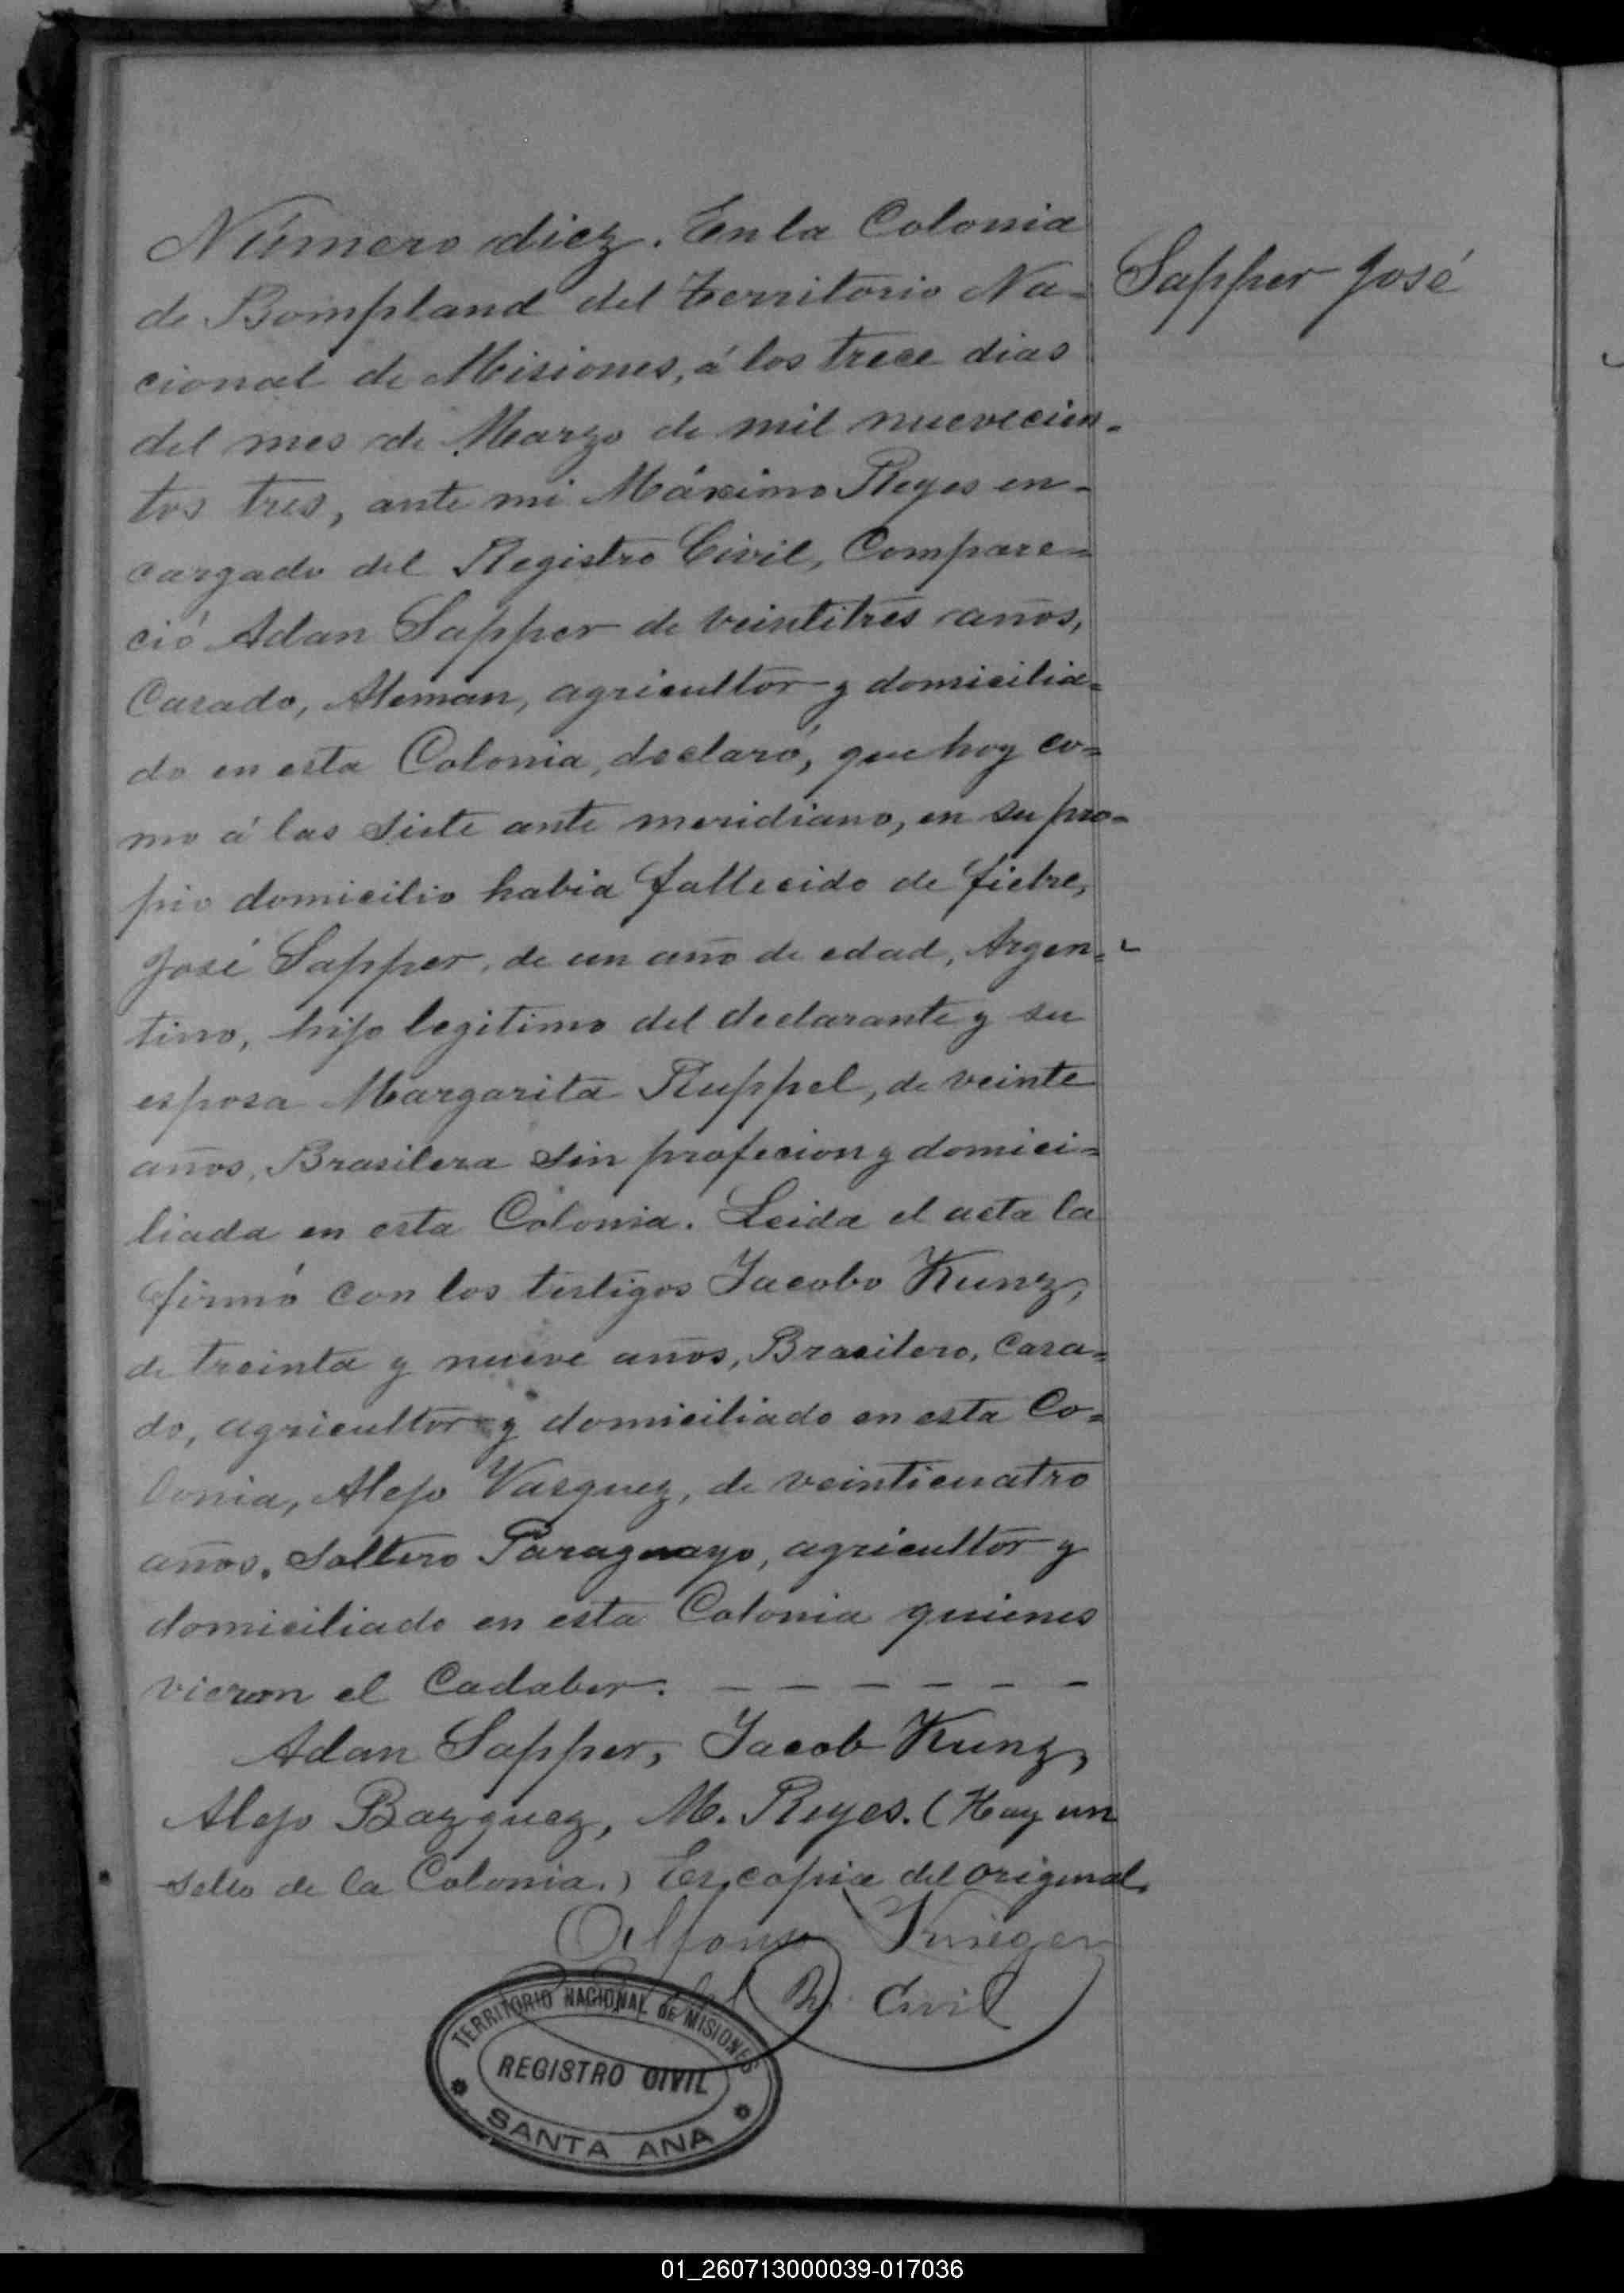 Número diez. En la Colonia
de Bompland del Territorio Na-
cional de Misiones, á los trece dias
del mes de Marzo de mil nuevecien-
tos tres, ante mi Máximo Reyes en-
cargado del Registro Civil, Compare-
ció Adan Sapper de veintitres años,
Casado, Aleman, agricultor y domicilia-
do en esta Colonia, declaró, que hoy co-
mo á las siete ante meridiano, en su pro-
pio domicilio habia fallecido de fiebre,
José Sapper, de un año de edad, Argen-
tino, hijo legitimo del declarante y su
esposa Margarita Ruppel, de veinte
años, Brasilera sin profecion y domici-
liada en esta Colonia. Leida el acta la
firmó con los testigos Jacobo Kunz,
de treinta y nueve años, Brasilero, Casa-
do, agricultor y domiciliado en esta Co-
lonia, Alejo Vasquez, de veinticuatro
años, Soltero Paraguayo, agricultor y
domiciliado en esta Colonia quienes
vieron el Cadaber. — — — — — —
Adan Sapper, Jacob Kunz,
Alejo Bazquez, M. Reyes. (Hay un
sello de la Colonia.) Es copia del original.
Sapper José
Alfonso Krieger
del R. Civil
TERRITORIO NACIONAL DE MISIONES
REGISTRO CIVIL
SANTA ANA
01_260713000039-017036